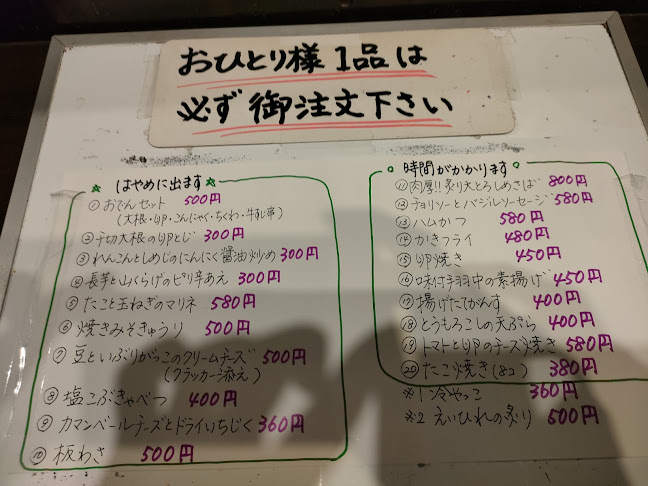 おひとり様1品は
必ず御注文下さい
☆ はやめに出ます ☆
① おでんセット 500円
(大根・卵・こんにゃく・ちくわ・牛すじ串)
② 千切大根の卵とじ 300円
③ れんこんとしめじのにんにく醤油炒め 300円
④ 長芋と山くらげのピリ辛あえ 300円
⑤ たこと玉ねぎのマリネ 580円
⑥ 焼きみそきゅうり 500円
⑦ 豆といぶりがっこのクリームチーズ 500円
(クラッカー添え)
⑧ 塩こぶきゃべつ 400円
⑨ カマンベールチーズとドライいちじく 360円
⑩ 板わさ 500円
○ 時間がかかります ○
⑪ 肉厚!!炙り大とろしめさば 800円
⑫ チョリソーとバジルソーセージ 580円
⑬ ハムかつ 580円
⑭ かきフライ 480円
⑮ 卵焼き 450円
⑯ 味付手羽中の素揚げ 450円
⑰ 揚げたてがんす 400円
⑱ とうもろこしの天ぷら 400円
⑲ トマトと卵のチーズ焼き 580円
⑳ たこ焼き(8コ) 380円
※1 冷やっこ 360円
※2 えいひれの炙り 500円